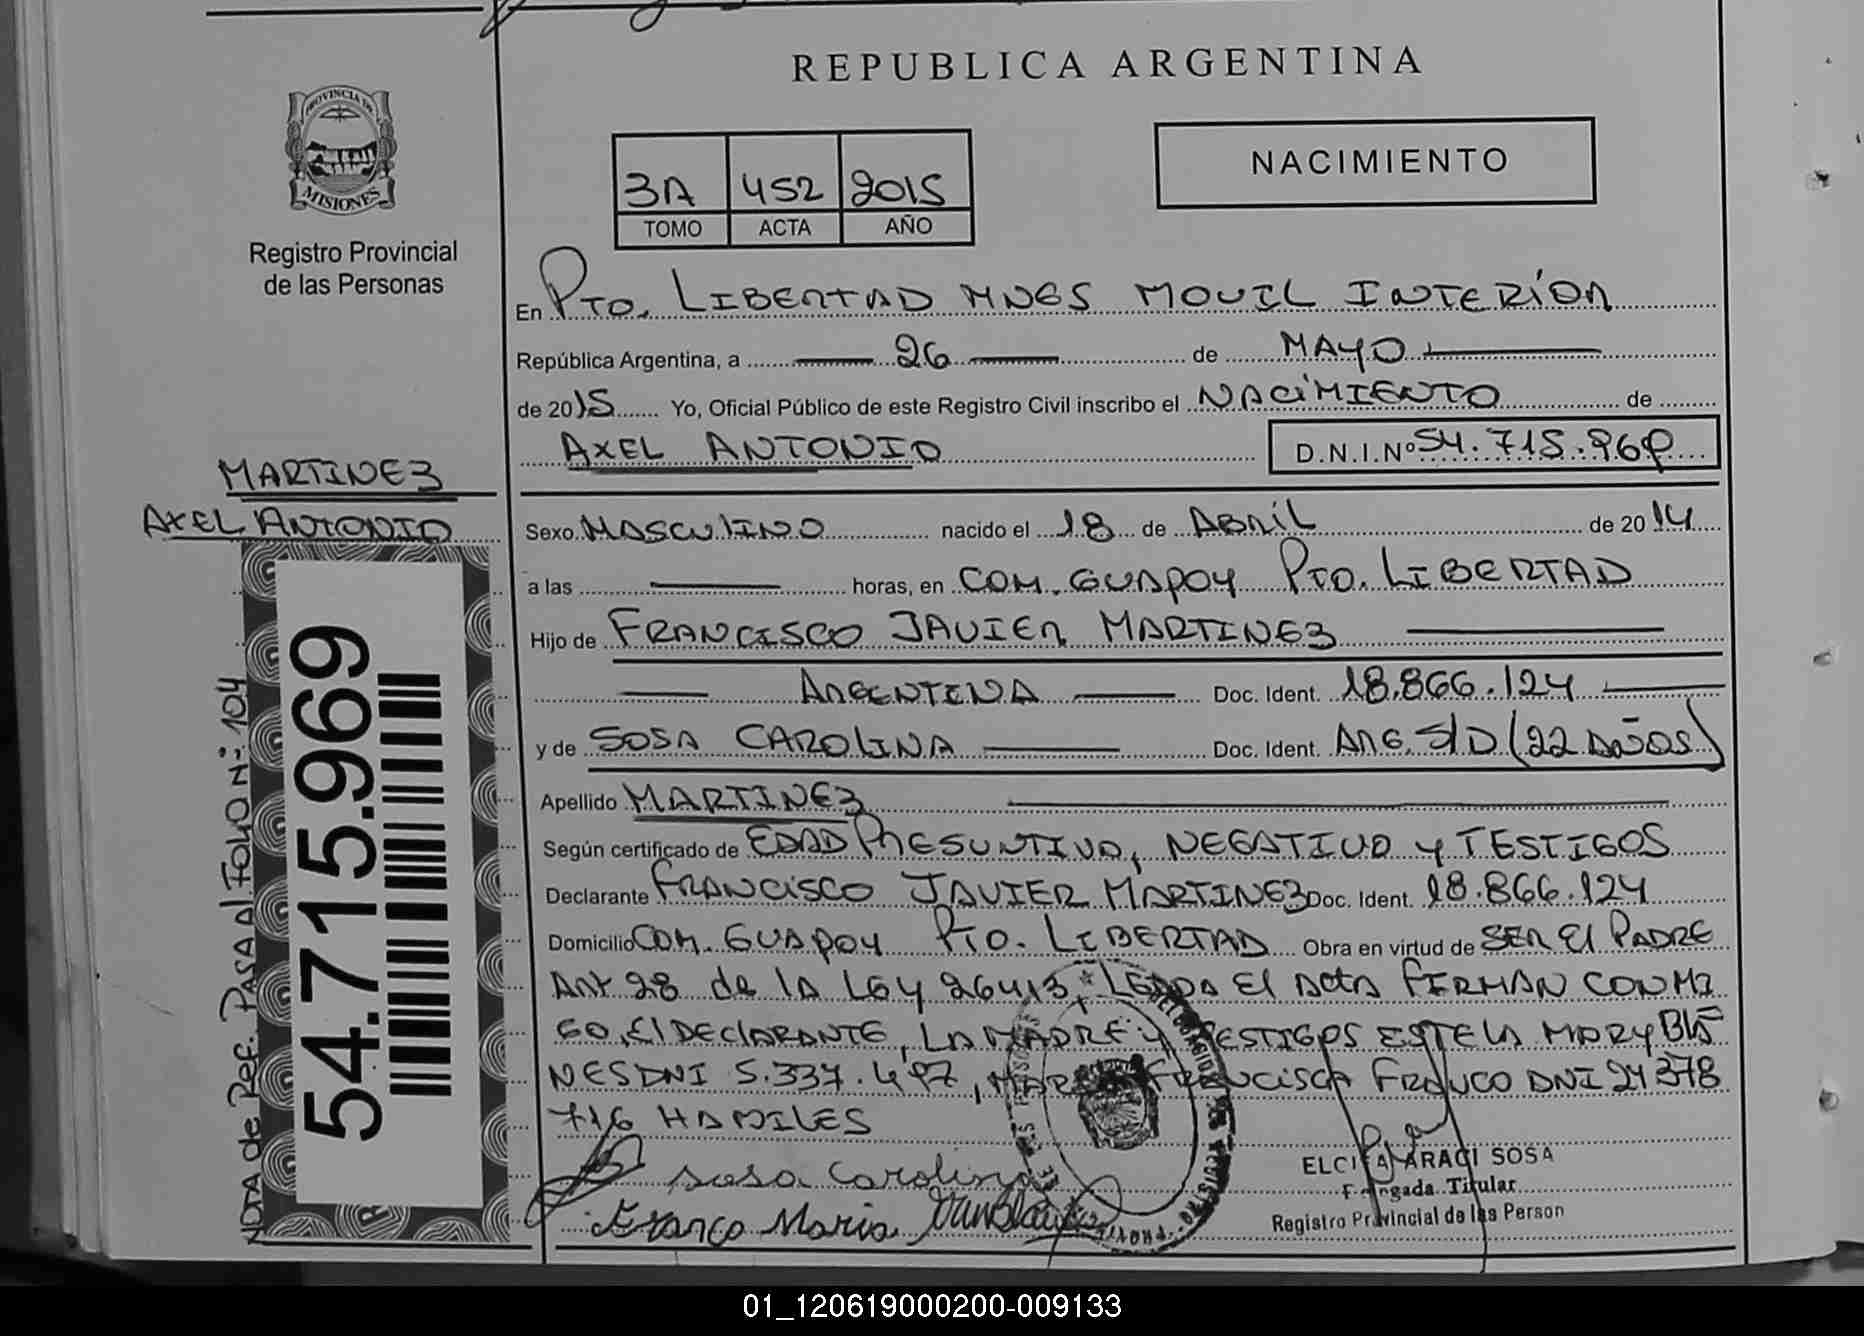 REPUBLICA ARGENTINA
PROVINCIA DE
MISIONES
Registro Provincial
de las Personas
3A 452 2015
TOMO ACTA AÑO
NACIMIENTO
En PTO. LIBERTAD MNES MOVIL INTERIOR
República Argentina, a 26 de MAYO
de 2015 Yo, Oficial Público de este Registro Civil inscribo el NACIMIENTO de
AXEL ANTONIO D.N.I.Nº 54.715.969
MARTINEZ
AXEL ANTONIO
Sexo MASCULINO nacido el 18 de ABRIL de 2014
a las horas, en COM. GUAPOY PTO. LIBERTAD
Hijo de FRANCISCO JAVIER MARTINEZ
ARGENTINA Doc. Ident. 18.866.124
y de SOSA CAROLINA Doc. Ident. ARG. S/D (22 AÑOS)
Apellido MARTINEZ
Según certificado de EDAD PRESUNTIVA, NEGATIVO y TESTIGOS
Declarante FRANCISCO JAVIER MARTINEZ Doc. Ident. 18.866.124
Domicilio COM. GUAPOY PTO. LIBERTAD Obra en virtud de SER El PADRE
Art 28 de lA LEY 26413, LEIDA El ActA FIRMAN CONMI
GO, El DEClARANTE, LA MADRE y TESTIGOS ESTELA MARY
NES DNI 5.337.497, FRANCISCA FRANCO DNI 24 378
716 HABILES
54.715.969
NOTA de REF. PASA Al FOLIO Nº: 104
sosa Carolina
Franco Maria
ELCIRA ARACI SOSA
Encargada Titular
Registro Provincial de las Person
01_120619000200-009133